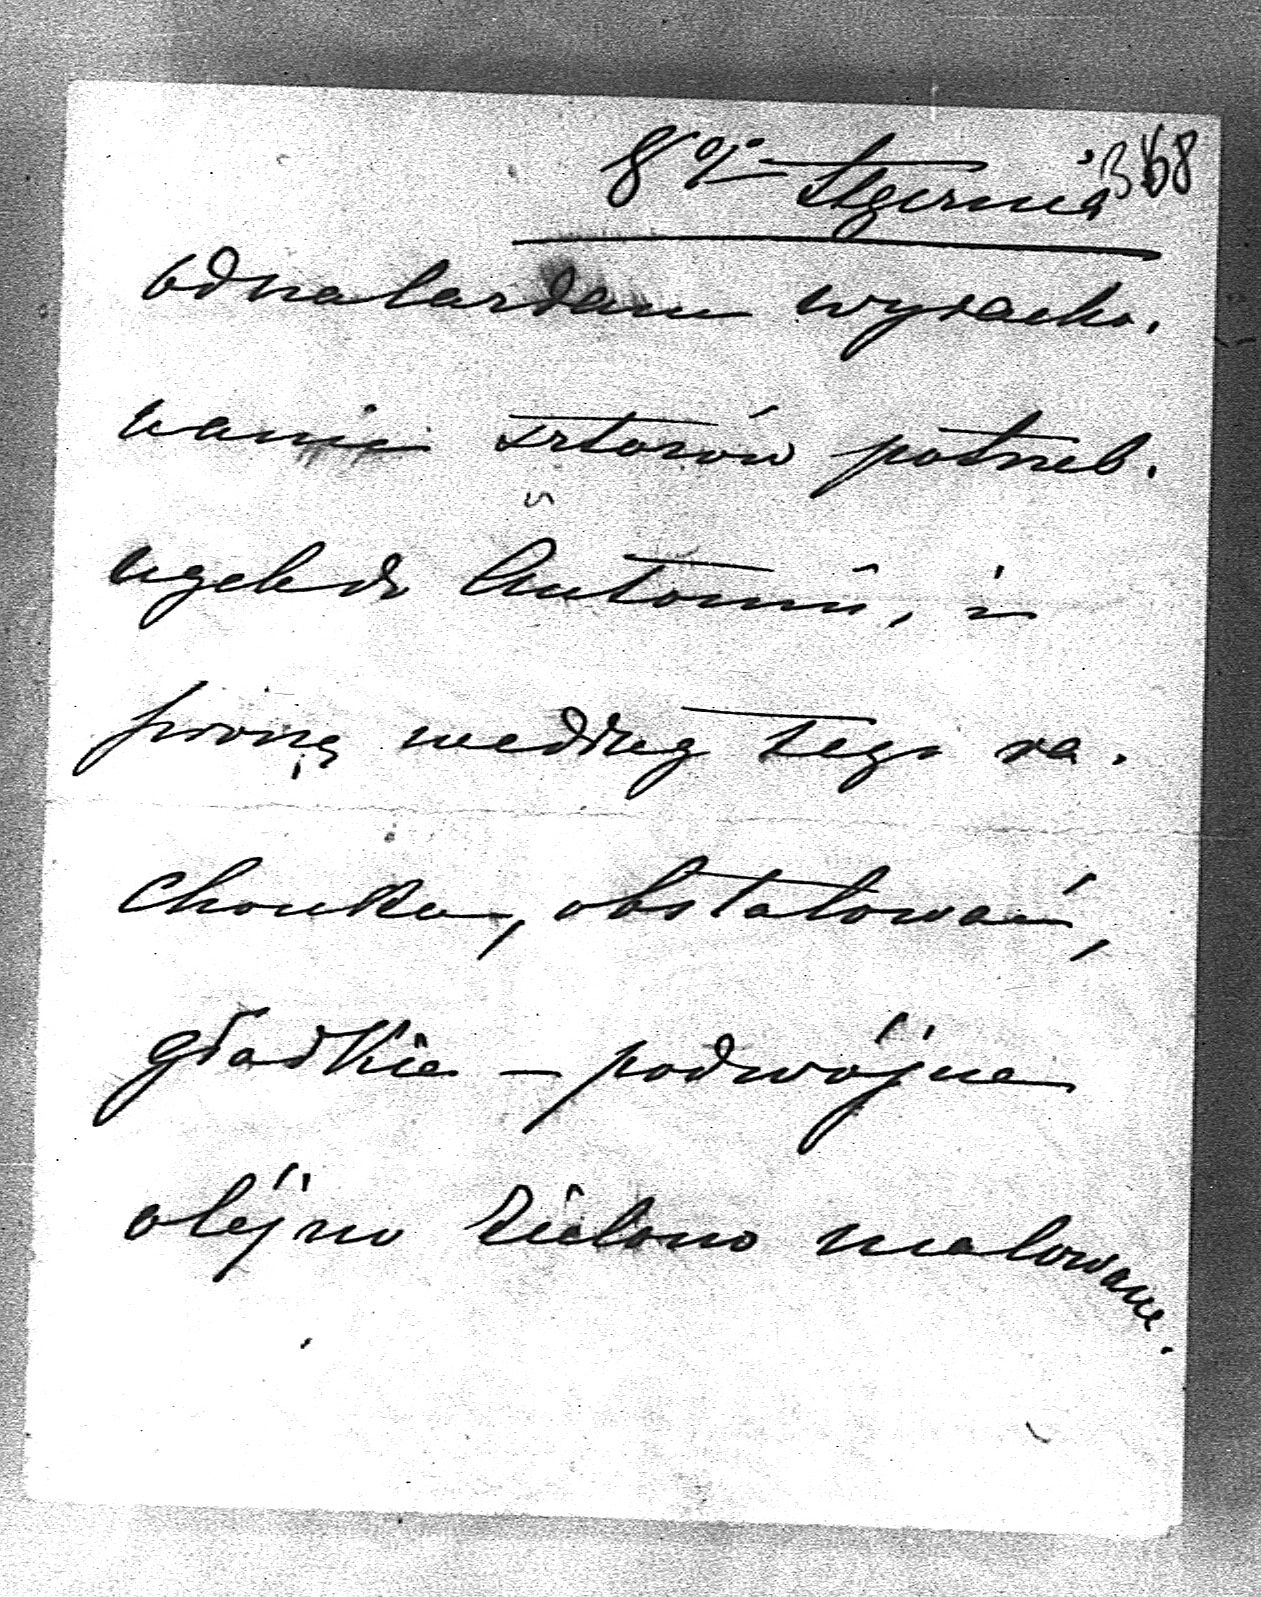 8go Stycznia 368
odnalazłam wyracho.
wanie sztorów potrzeb.
nych do Antonin, i
proszę według tego ra.
chunku, obstalować,
gładkie – podwójne
olejno zielono malowane.